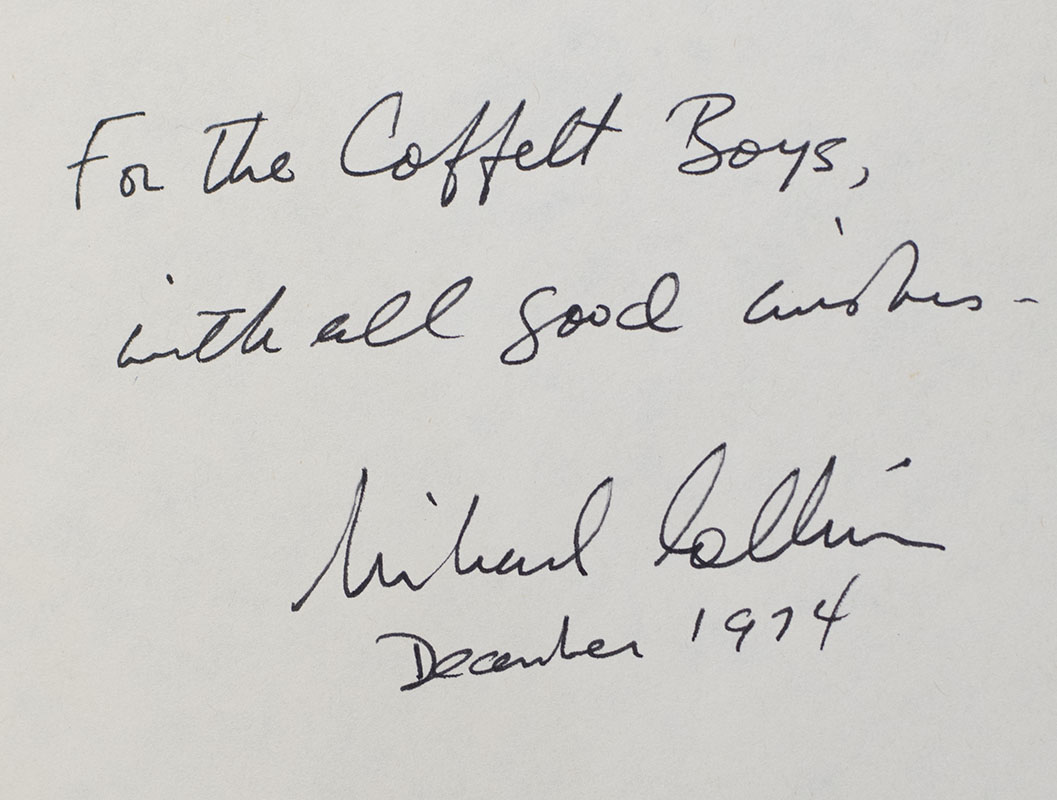 For The Coffelt Boys,
with all good wishes -
Michael Collins
December 1974